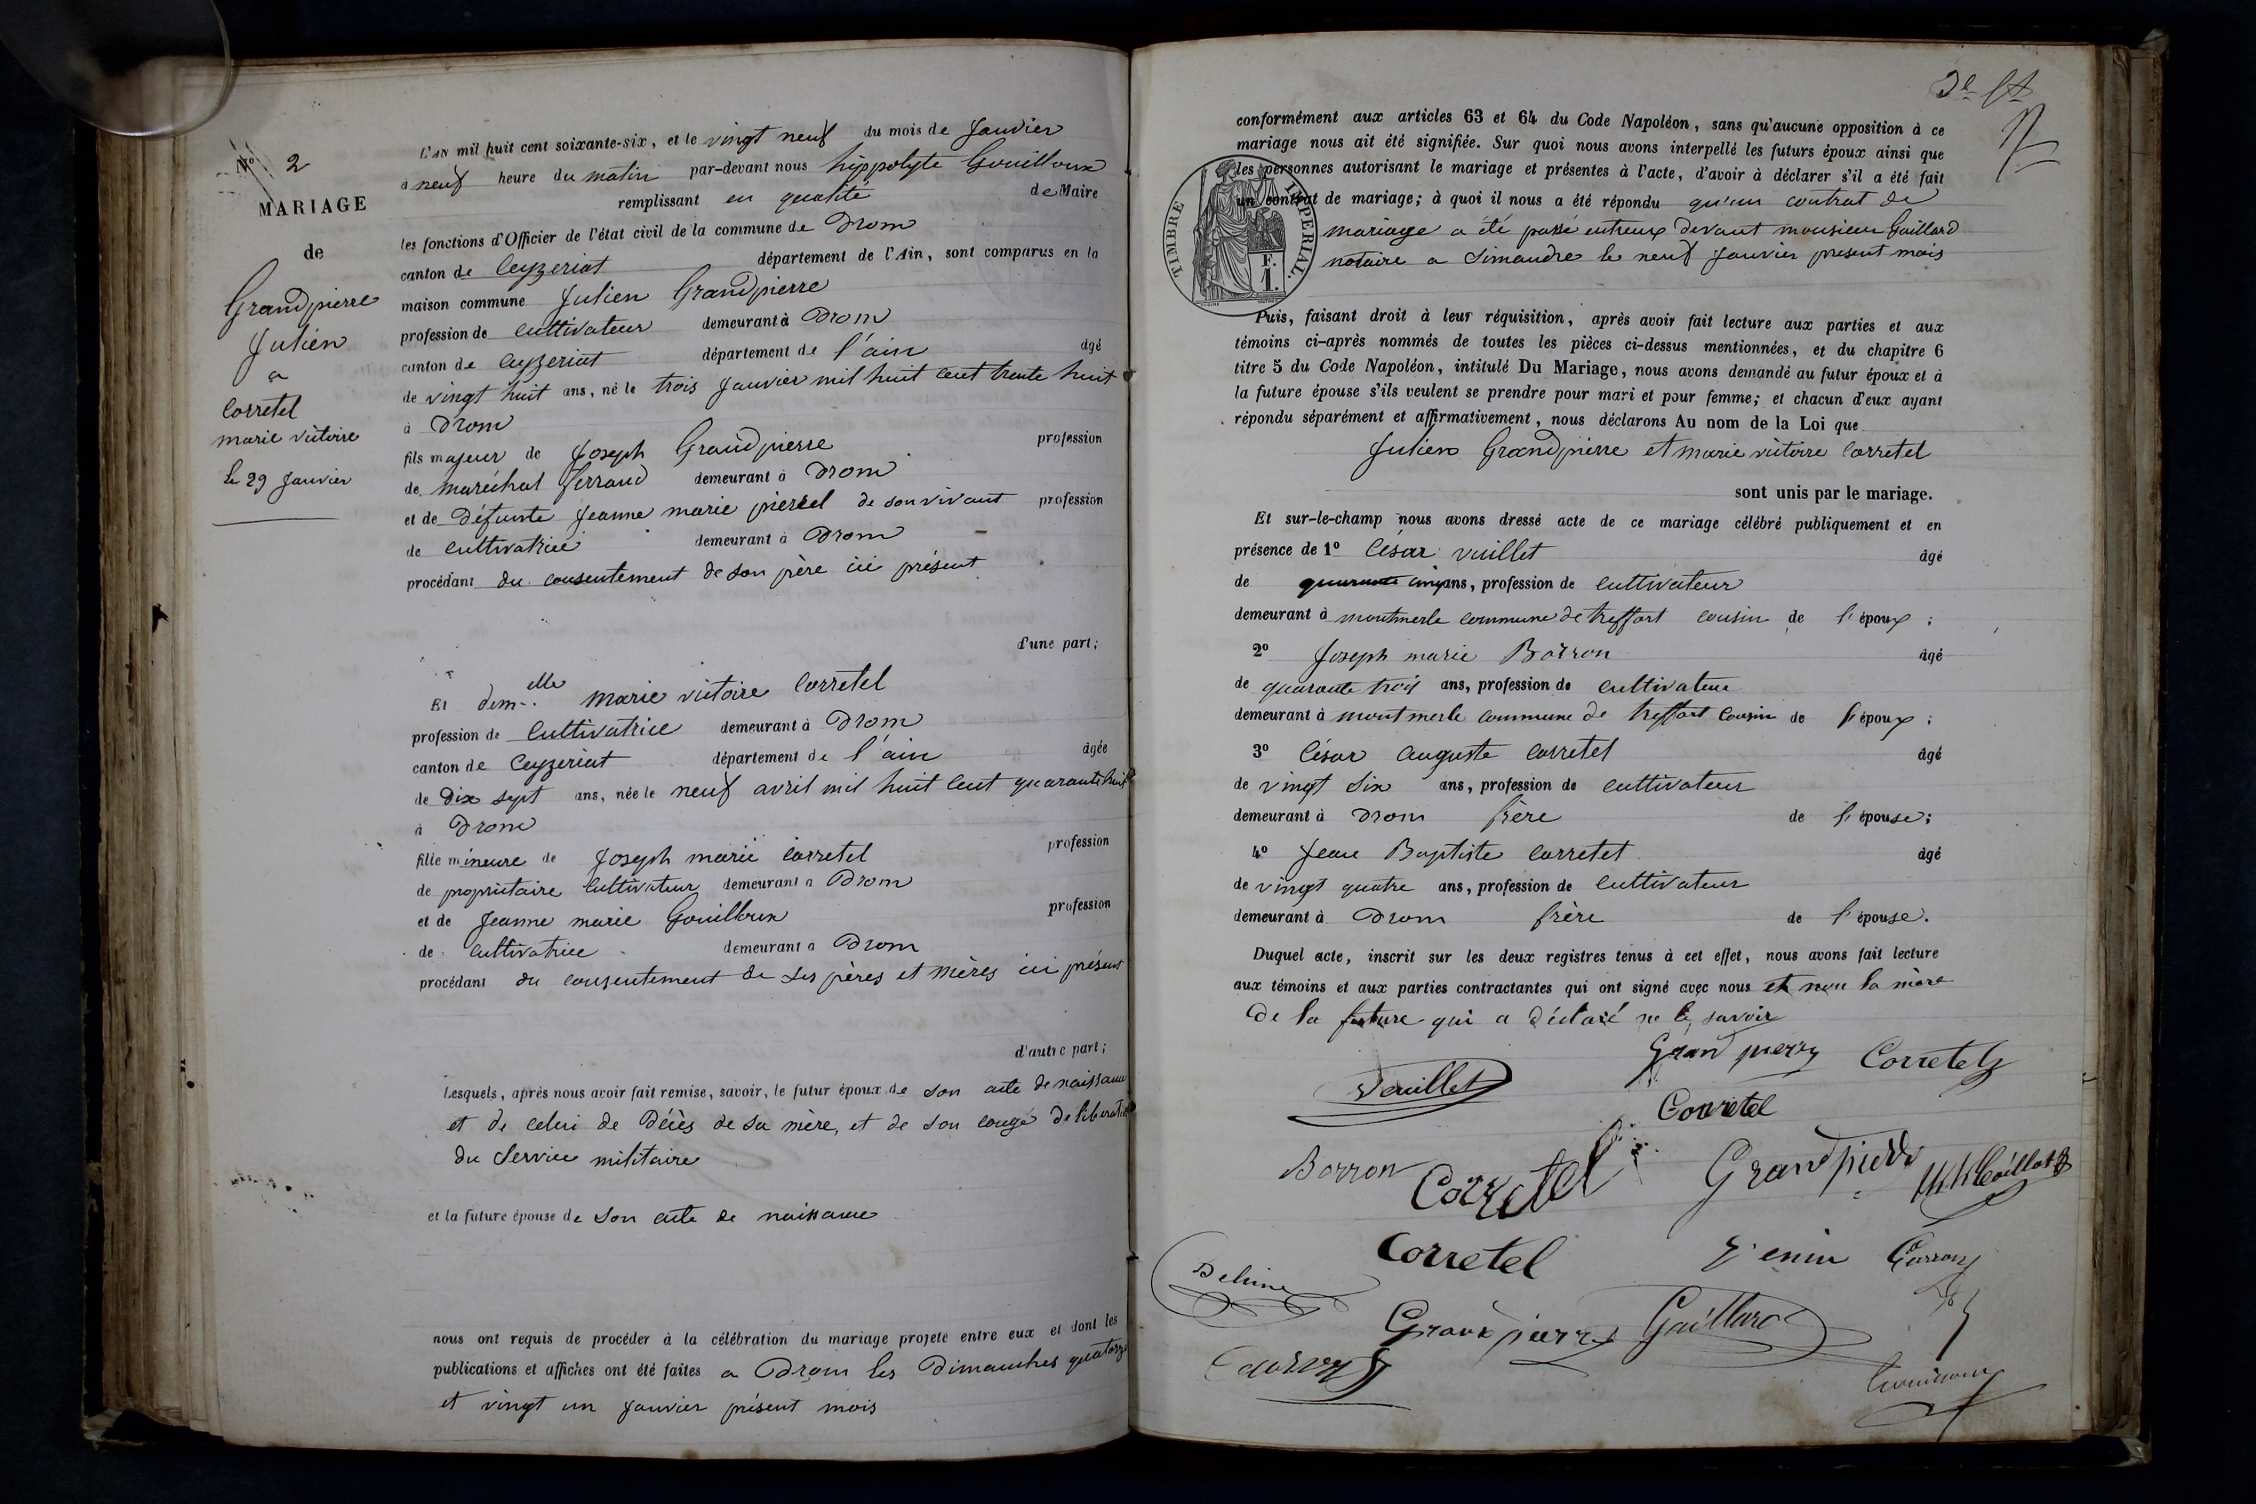 N° 2
MARIAGE
de
Grandpierre
Julien
a
Corretel
marie victoire
le 29 Janvier
L'AN mil huit cent soixante-six, et le vingt neuf du mois de Janvier
à neuf heure du matin par-devant nous hippolyte Gouilloux
remplissant en qualité de Maire
les fonctions d'Officier de l'état civil de la commune de Drom
canton de Ceyzeriat département de l'Ain, sont comparus en la
maison commune Julien Grandpierre
profession de cultivateur demeurant à Drom
canton de ceyzeriat département de l'ain âgé
de vingt huit ans, né le trois Janvier mil huit cent trente huit
à Drom
fils majeur de Joseph Grandpierre profession
de maréchal ferrand demeurant à Drom
et de Défunte Jeanne marie pierrel de son vivant profession
de cultivatrice demeurant à Drom
procédant du consentement de son père ici présent
d'une part;
Et demelle marie victoire Corretel
profession de Cultivatrice demeurant à Drom
canton de Ceyzeriat département de l'ain âgée
de Dix sept ans, née le neuf avril mil huit cent quarante huit
à Drom
fille mineure de Joseph marie Corretel profession
de propriétaire Cultivateur demeurant à Drom
et de Jeanne marie Gouilloux profession
de Cultivatrice demeurant à Drom
procédant du consentement de ses pères et mères ici présent
d'autre part;
Lesquels, après nous avoir fait remise, savoir, le futur époux de son acte de naissance
et de celui de Décès de sa mère, et de son congé de libération
du Service militaire
et la future épouse de son acte de naissance
nous ont requis de procéder à la célébration du mariage projeté entre eux et dont les
publications et affiches ont été faites a Drom les Dimanches quatorze
et vingt un Janvier présent mois
conformément aux articles 63 et 64 du Code Napoléon, sans qu'aucune opposition à ce
mariage nous ait été signifiée. Sur quoi nous avons interpellé les futurs époux ainsi que
les personnes autorisant le mariage et présentes à l'acte, d'avoir à déclarer s'il a été fait
un contrat de mariage; à quoi il nous a été répondu qu'un contrat de
mariage a été passé entreux devant monsieur Gaillard
notaire a Simandre le neuf Janvier present mois
TIMBRE IMPERIAL.
F.
1.
Puis, faisant droit à leur réquisition, après avoir fait lecture aux parties et aux
témoins ci-après nommés de toutes les pièces ci-dessus mentionnées, et du chapitre 6
titre 5 du Code Napoléon, intitulé Du Mariage, nous avons demandé au futur époux et à
la future épouse s'ils veulent se prendre pour mari et pour femme; et chacun d'eux ayant
répondu séparément et affirmativement, nous déclarons Au nom de la Loi que
Julien Grandpierre et marie victoire Corretel
sont unis par le mariage.
Et sur-le-champ nous avons dressé acte de ce mariage célébré publiquement et en
présence de 1° César vuillet âgé
de quarante cinq ans, profession de cultivateur
demeurant à montmerle commune de treffort cousin de l'époux;
2° Joseph marie Borron âgé
de quarante trois ans, profession de cultivateur
demeurant à montmerle commune de treffort Cousin de l'époux;
3° César auguste Corretel âgé
de vingt six ans, profession de cultivateur
demeurant à Drom frère de l'épouse;
4° Jean Baptiste Corretel âgé
de vingt quatre ans, profession de cultivateur
demeurant à Drom frère de l'épouse.
Duquel acte, inscrit sur les deux registres tenus à cet effet, nous avons fait lecture
aux témoins et aux parties contractantes qui ont signé avec nous et non la mère
de la future qui a déclaré ne le savoir
Grand pierre Corretel
Veuillet
Corretel
Borron Corretel Grandpierre
Corretel Genin
Grand pierre Gaillard